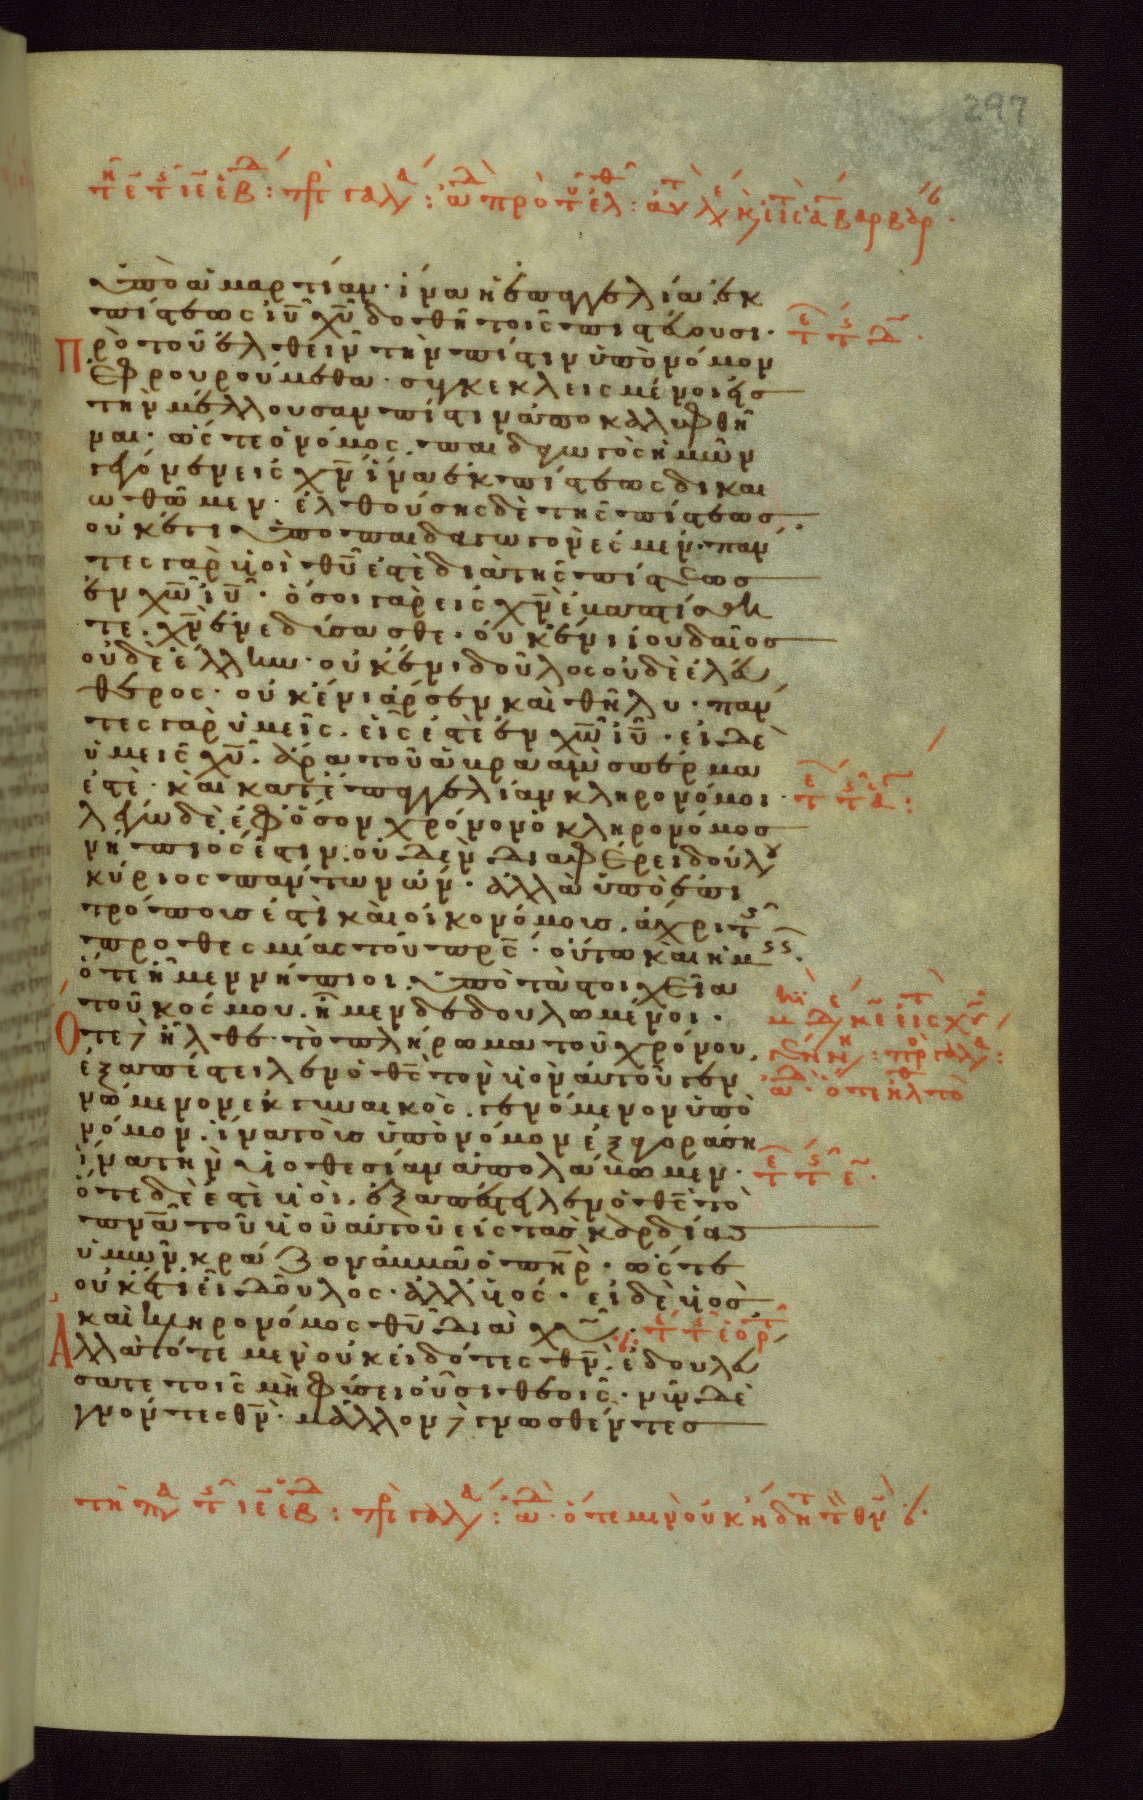 297
ὑπὸ ἁμαρτίαν· ἵνα ἡ ἐπαγγελία ἐκ
πίστεως ἰῦ χῦ δοθῆ τοῖς πιστεύουσι·
Πρὸ τοῦ ἐλθεῖν τὴν πίστιν ὑπὸ νόμον
ἐφρουρούμεθα· συγκεκλεισμένοι εἰς
τὴν μέλλουσαν πίστιν ἀποκαλυφθῆ
ναι· ὥστε ὁ νόμος παιδαγωγὸς ἡμῶν
γέγονεν εἰς χν̄ ἵνα ἐκ πίστεως δικαι
ωθῶμεν· ἐλθούσης δὲ τῆς πίστεως
οὐκέτι ὑπὸ παιδαγωγόν ἐσμεν· πάν
τες γὰρ υἱοὶ θῦ ἐστὲ διὰ τῆς πίστεως
ἐν χῶ ἰῦ· ὅσοι γὰρ εἰς χν̄ ἐβαπτίσθη
τε· χν̄ ἐνεδύσασθε· οὐκ ἔνι ἰουδαῖος
οὐδὲ ἕλλην· οὐκ ἔνι δοῦλος οὐδὲ ἐλεύ
θερος· οὐκ ἔνι ἄρσεν καὶ θῆλυ· πάν
τες γὰρ ὑμεῖς εἷς ἐστὲ ἐν χῶ ἰῦ· εἰ δὲ
ὑμεῖς χῦ· ἄρα τοῦ ἀβραὰμ σπέρμα
ἐστέ· καὶ κατ' ἐπαγγελίαν κληρονόμοι·
λέγω δὲ ἐφ' ὅσον χρόνον ὁ κληρονόμος
νήπιός ἐστιν· οὐδὲν διαφέρει δούλου
κύριος πάντων ὤν· ἀλλὰ ὑπὸ ἐπι
τρόπους ἐστὶ καὶ οἰκονόμους· ἄχρι τῆς
προθεσμίας τοῦ πρς̄· οὕτω καὶ ἡμεῖς
ὅτε ἦμεν νήπιοι· ὑπὸ τὰ στοιχεῖα
τοῦ κόσμου· ἦμεν δεδουλωμένοι·
Ὅτε ἦλθε τὸ πλήρωμα τοῦ χρόνου,
ἐξαπέστειλεν ὁ θς̄ τὸν υἱὸν αὐτοῦ γεν
νώμενον ἐκ γυναικὸς· γενόμενον ὑπὸ
νόμον· ἵνα τοὺς ὑπὸ νόμον ἐξαγοράση
ἵνα τὴν υἱοθεσίαν ἀπολάβωμεν·
ὅτε δὲ ἐστὲ υἱοί· ἐξαπέστειλεν ὁ θς̄ τὸ
πνᾶ τοῦ υἱοῦ αὐτοῦ εἰς τὰς καρδίας
ὑμῶν κράζον ἀββᾶ ὁ πηρ̄· ὥστε
οὐκέτι εἶ δοῦλος· ἀλλ' υἱός· εἰ δὲ υἱὸς
καὶ κληρονόμος θῦ διὰ χῦ·
Ἀλλὰ τότε μὲν οὐκ εἰδότες θν̄· ἐδουλεύ
σατε τοῖς μὴ φύσει οὖσι θεοῖς· νῦν δὲ
γνόντες θν̄· μᾶλλον δὲ γνωσθέντες